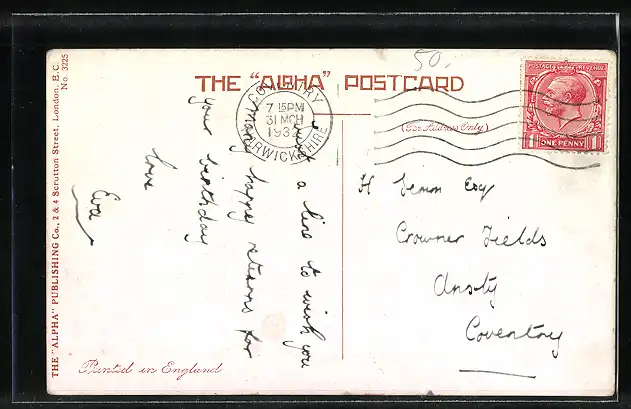 THE "ALPHA" POSTCARD
50.
COVENTRY
7 15PM
31 MCH
WARWICKSHIRE
POSTAGE REVENUE
1 ONE PENNY 1
(For Address Only)
Just a line to wish you
many happy returns for
your birthday
love
Eva
H Esq
Crowner Fields
Ansty
Coventry
Printed in England
THE "ALPHA" PUBLISHING Co., 2 & 4 Scrutton Street, London, E.C.
No. 3225